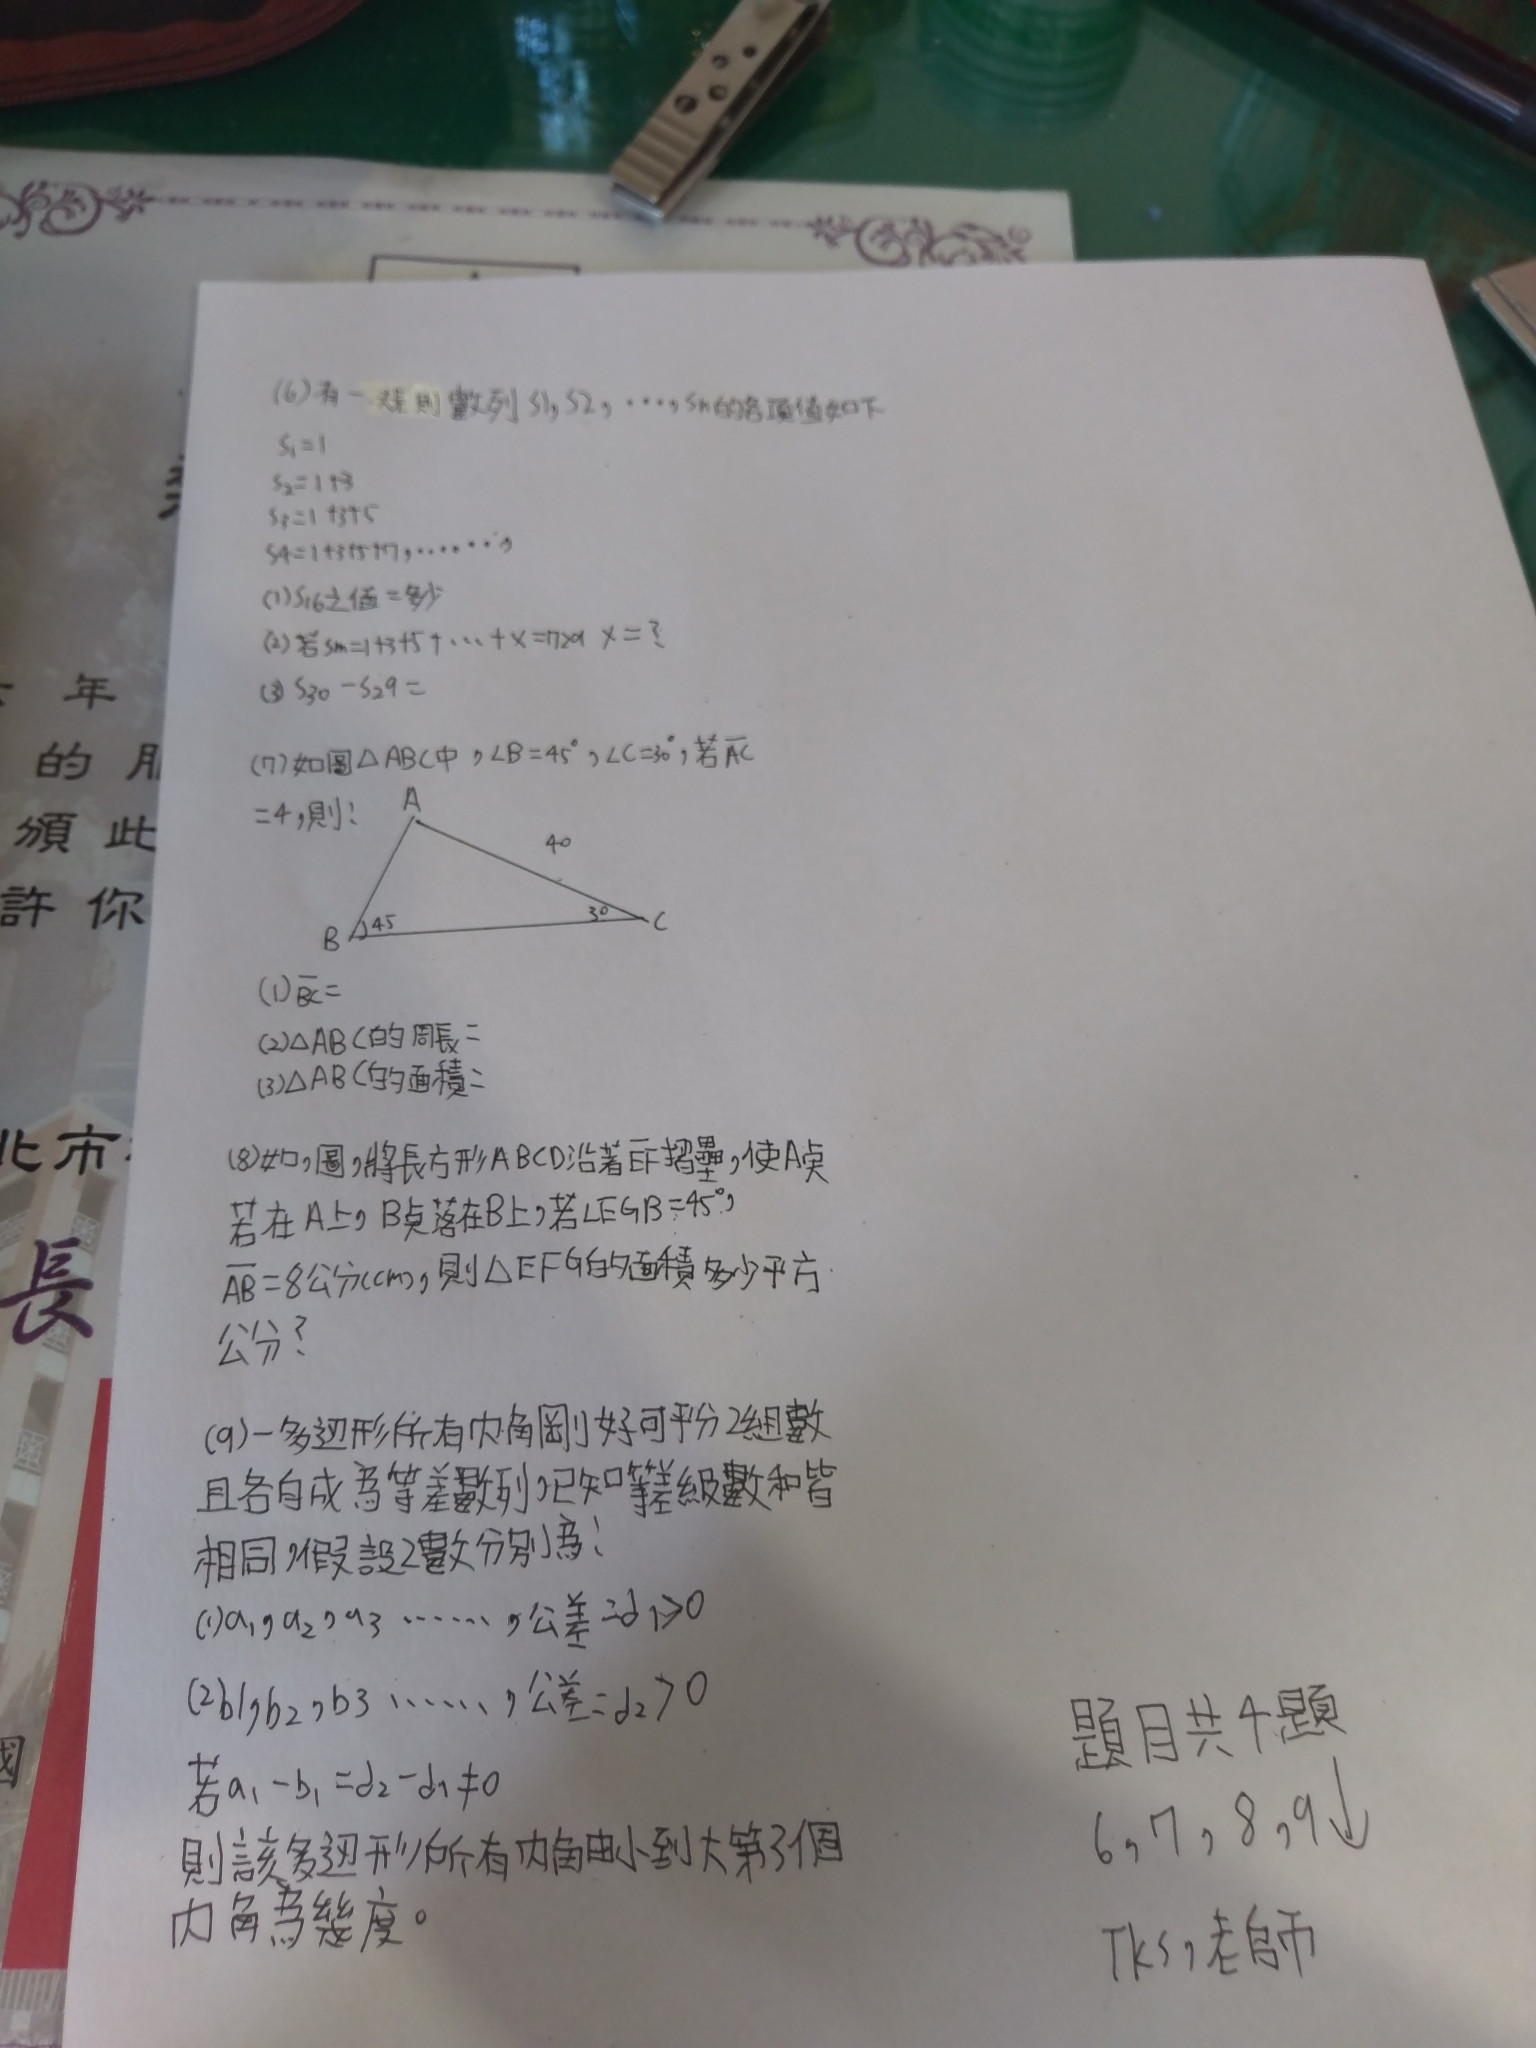 (6)有一規則數列S1,S2,‧‧‧,Sn的各項值如下
S1=1
S2=1+3
S3=1+3+5
S4=1+3+5+7,‧‧‧‧‧‧,
(1)S16之值=多少
(2)若Sm=1+3+5+‧‧‧+X=729 X=?
(3)S30-S29=
(7)如圖△ABC中,∠B=45°,∠C=30°,若AC
=4,則:
A
40
B
45
30
C
(1)BC=
(2)△ABC的周長=
(3)△ABC的面積=
(8)如,圖,將長方形ABCD沿著EF摺疊,使A點
若在A上,B點落在B上,若∠EGB=45°,
AB=8公分(cm),則△EFG的面積多少平方
公分?
(9)一多边形所有内角剛好可平分2組數
且各自成為等差數列,已知等差級數和皆
相同,假設2數分別為:
(1)a1,a2,a3 ‧‧‧‧‧‧,公差=d1>0
(2)b1,b2,b3 ‧‧‧‧‧‧,公差=d2>0
若a1-b1=d2-d1≠0
則該多边形所有内角由小到大第3個
内角為幾度。
題目共4題
6,7,8,9↓
Tks,老師
年
的
頒此
許你
北市
長
國